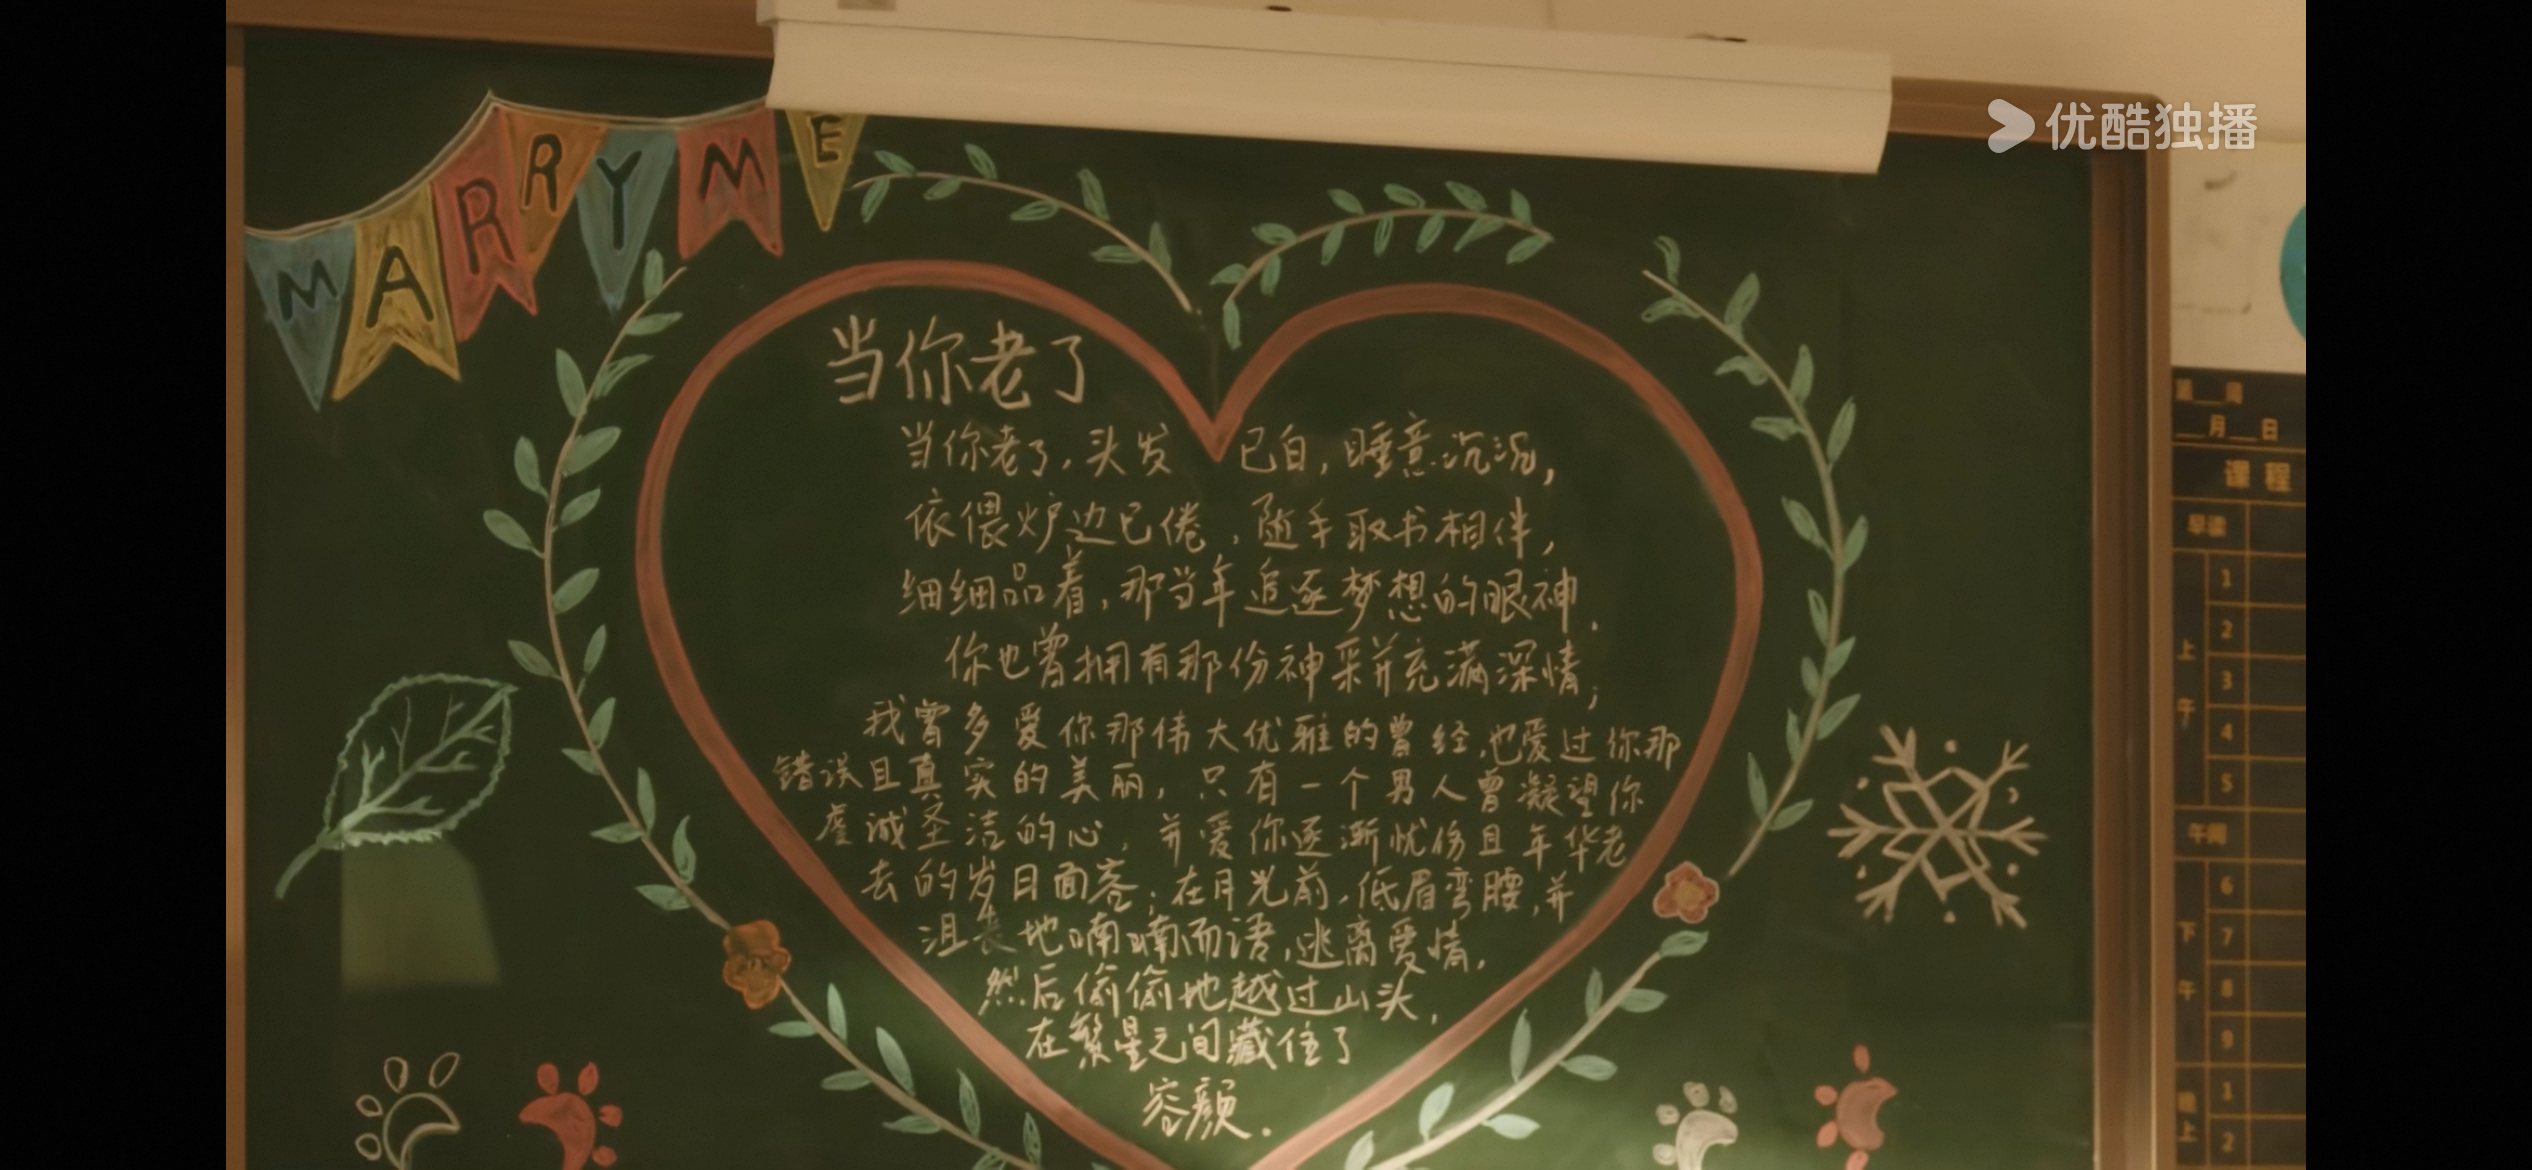 MARRY ME
优酷独播
当你老了
当你老了，头发已白，睡意沉沉，
依偎炉边已倦，随手取书相伴，
细细品着，那当年追逐梦想的眼神．
你也曾拥有那份神采并充满深情；
我曾多爱你那伟大优雅的曾经，也爱过你那
错误且真实的美丽，只有一个男人曾凝望你
虔诚圣洁的心，并爱你逐渐忧伤且年华老
去的岁日面容；在月光前，低眉弯腰，并
沮丧地喃喃而语，逃离爱情，
然后偷偷地越过山头，
在繁星之间藏住了
容颜．
第__周
__月__日
课程
早读
上午
1
2
3
4
5
午间
下午
6
7
8
9
晚上
1
2